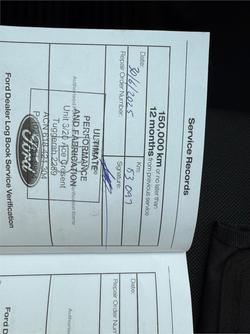 Service Records
150,000 km or no later than
12 months from previous service
Date: 30/6/2025
Km: 53 097
Repair Order Number:
Signature:
ULTIMATE
PERFORMANCE
AND FABRICATION
Unit 3/20
Tuggerah 2259
Ford
Ford Dealer Log Book Service Verification
Date:
Repair Order Number:
Ford D